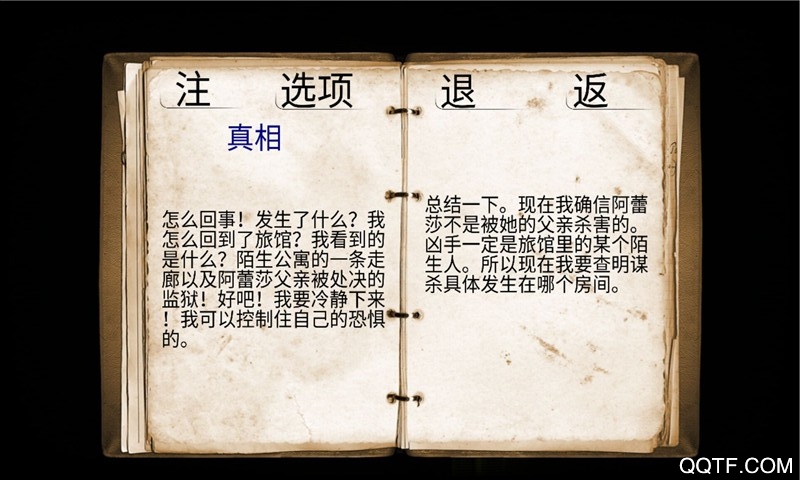 注 选项 退 返
真相
怎么回事！发生了什么？我
怎么回到了旅馆？我看到的
是什么？陌生公寓的一条走
廊以及阿蕾莎父亲被处决的
监狱！好吧！我要冷静下来
！我可以控制住自己的恐惧
的。
总结一下。现在我确信阿蕾
莎不是被她的父亲杀害的。
凶手一定是旅馆里的某个陌
生人。所以现在我要查明谋
杀具体发生在哪个房间。
QQTF.COM